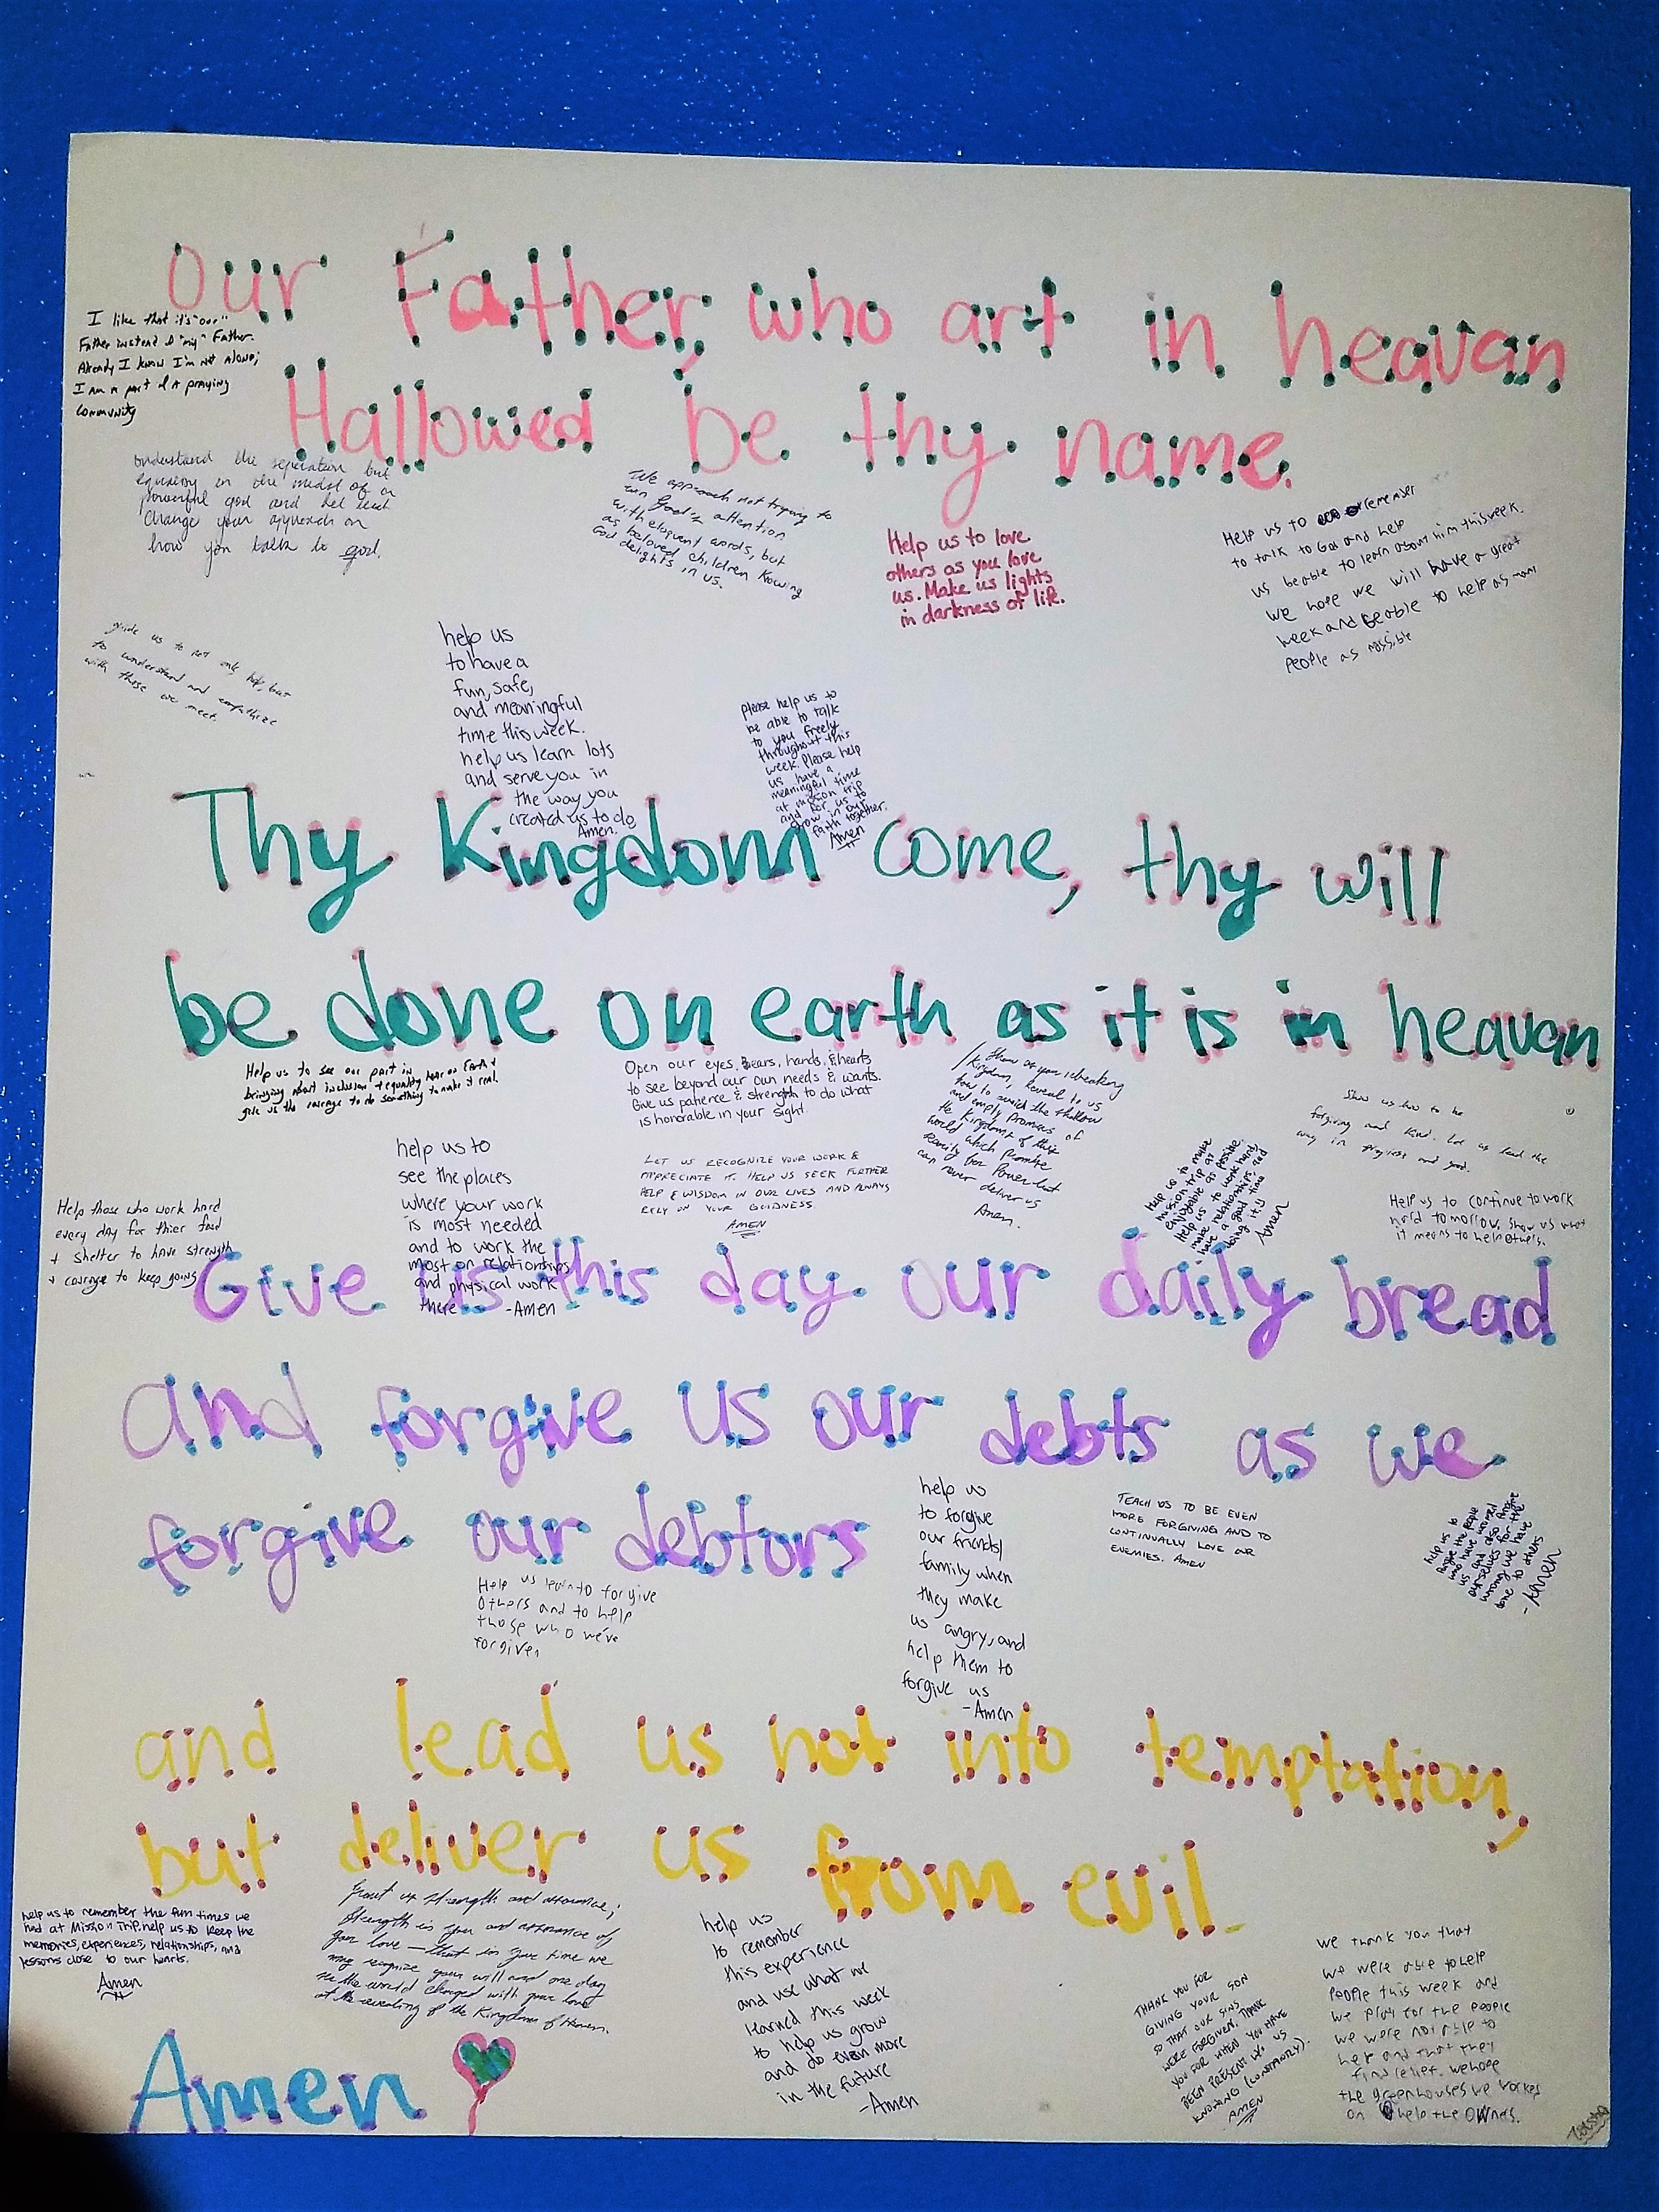 Our Father, who art in heavan
I like that it's "our"
Father instead of "my" Father.
Already I know I'm not alone;
I am a part of a praying
community
Hallowed be thy name.
understand the seperation but
equality in the midst of a
powerful god and let that
change your approach on
how you talk to god.
We approach not trying to
win God's attention
with eloquent words, but
as beloved children knowing
God delights in us.
Help us to love
others as you love
us. Make us lights
in darkness of life.
Help us to remember
to talk to God and help
us beable to learn about him this week.
we hope we will have a great
week and beable to help as many
people as possible
guide us to not only help, but
to understand and empathize
with those we meet.
help us
to have a
fun, safe,
and meaningful
time this week.
help us learn lots
and serve you in
the way you
created us to do
Amen.
please help us to
be able to talk
to you freely
throughout this
week. Please help
us have a
meaningful time
at mission trip
and for us to
grow in our
faith together.
Amen
Thy Kingdom come, thy will
be done on earth as it is in heavan
Help us to see our part in
bringing about inclusion + equality here on Earth +
give us the courage to do something to make it real.
Open our eyes, ears, hands, & hearts
to see beyond our own needs & wants.
Give us patience & strength to do what
is honorable in your sight.
Show us your inbreaking
Kingdom, reveal to us
how to avoid the shallow
and empty promises of
the Kingdoms of this
world which promise
security or Power but
can never deliver us
Amen.
Show us how to be
forgiving and kind. Let us lead the
way in progress and good.
help us to
see the places
where your work
is most needed
and to work the
most on relationships
and physical work
there -Amen
LET US RECOGNIZE YOUR WORK &
APPRECIATE IT. HELP US SEEK FURTHER
HELP & WISDOM IN OUR LIVES AND ALWAYS
RELY ON YOUR GUIDNESS.
AMEN
Help us to make
mission trip as
enjoyable as possible.
Help us to work hard,
make relationships, and
have a good time
doing it :)
Amen
Help us to continue to work
hard tomorrow, show us what
it means to help others.
Help those who work hard
every day for thier food
+ shelter to have strength
+ courage to keep going
Give us this day our daily bread
and forgive us our debts as we
forgive our debtors
Help us learn to forgive
others and to help
those who we've
forgiven
help us
to forgive
our friends/
family when
they make
us angry, and
help them to
forgive us
-Amen
TEACH US TO BE EVEN
MORE FORGIVING AND TO
CONTINUALLY LOVE OUR
ENEMIES. AMEN
help us to
forgive the people
who have wronged
us and also forgive
ourselves for the
wrong we have
done to others
-Amen
and lead us not into temptation,
but deliver us from evil.
help us to remember the fun times we
had at Mission Trip. help us to keep the
memories, experiences, relationships, and
lessons close to our hearts.
Amen
Grant us strength and assurance;
Strength in you and assurance of
your love — that in your time we
may recognize your will and one day
see the world changed with your love
at the revealing of the Kingdom of Heaven.
help us
to remember
this experience
and use what we
learned this week
to help us grow
and do even more
in the future
-Amen
THANK YOU FOR
GIVING YOUR SON
SO THAT OUR SINS
WERE FORGIVEN. THANK
YOU FOR WHEN YOU HAVE
BEEN PRESENT W/O US
KNOWING (CONSTANTLY).
AMEN
we thank you that
we were able to help
people this week and
we pray for the people
we were not able to
help and that they
find relief. we hope
the greenhouses we worked
on help the owners.
Amen